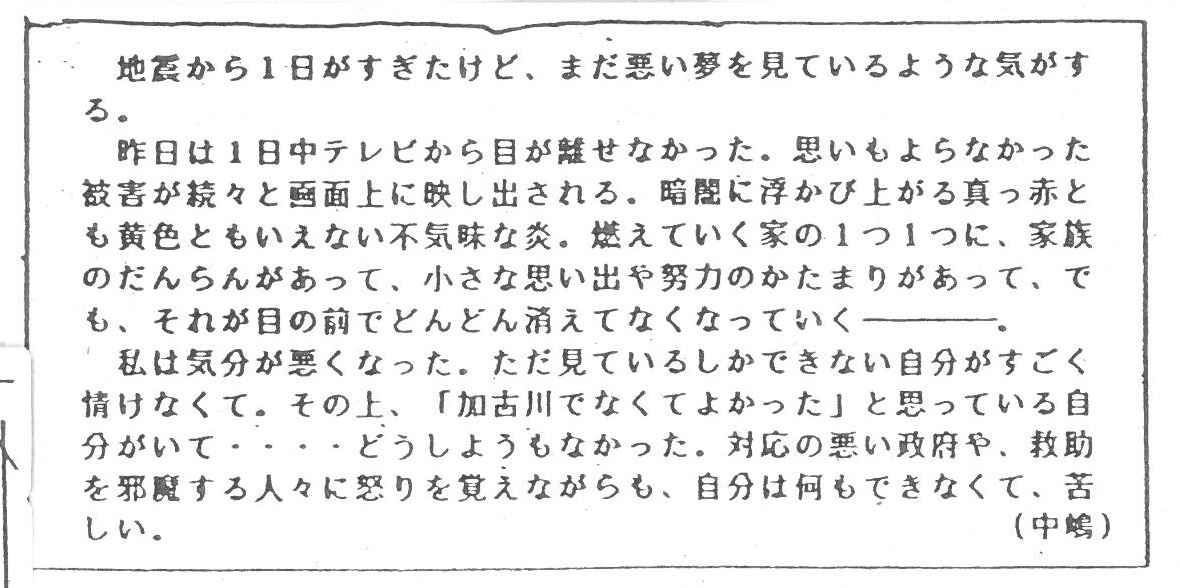 地震から１日がすぎたけど、まだ悪い夢を見ているような気がす
る。
　昨日は１日中テレビから目が離せなかった。思いもよらなかった
被害が続々と画面上に映し出される。暗闇に浮かび上がる真っ赤と
も黄色ともいえない不気味な炎。燃えていく家の１つ１つに、家族
のだんらんがあって、小さな思い出や努力のかたまりがあって、で
も、それが目の前でどんどん消えてなくなっていく――――。
　私は気分が悪くなった。ただ見ているしかできない自分がすごく
情けなくて。その上、「加古川でなくてよかった」と思っている自
分がいて・・・・どうしようもなかった。対応の悪い政府や、救助
を邪魔する人々に怒りを覚えながらも、自分は何もできなくて、苦
しい。　　　　　　　　　　　　　　　　　　　　　　　　　（中嶋）